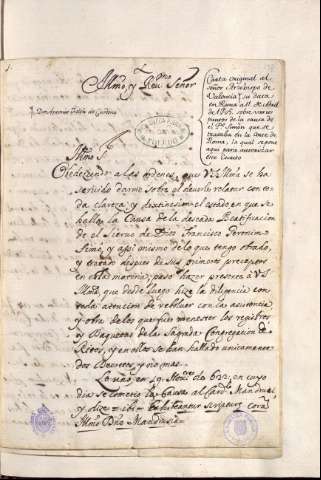 Illmo. y Rmo. Señor
Carta original al
señor Arzobispo de
Valencia, su data
en Roma a 11. de Abril
de 1705. sobre varios
puntos de la causa de
el Pe. Simón que se
trataba en la corte de
Roma, la qual se pone
aqui para autorizar
este Escrito
Don Antonio Folch de Cardona
Illmo. Sr.
Obedeziendo a las ordenes, que V.S. Illma. se ha
servido darme sobre el deverle relatar con to-
da claridad, y distincion el estado en que se
halla la Causa de la deseada Beatificacion
de el Siervo de Dios Francisco Geronimo
Simó, y assi mismo de lo que tengo obrado,
y tratado despues de sus primeros preceptos
en esta materia; paso hazer presente a V.S.
Illma. que desde luego hize la diligencia con
toda atencion de rebolver con la asistencia
y obra de los que fue menester los registros
y Paquetes de la Sagrada Congregacion de
Ritos, y en ellos se han hallado unicamente
dos Decretos, y no mas.
Lo uno en 19. de 622; en cuyo
dia se cometio la Causa al Cardl.
y dize = ibi = scripturæ corã
Illmo. Dño.